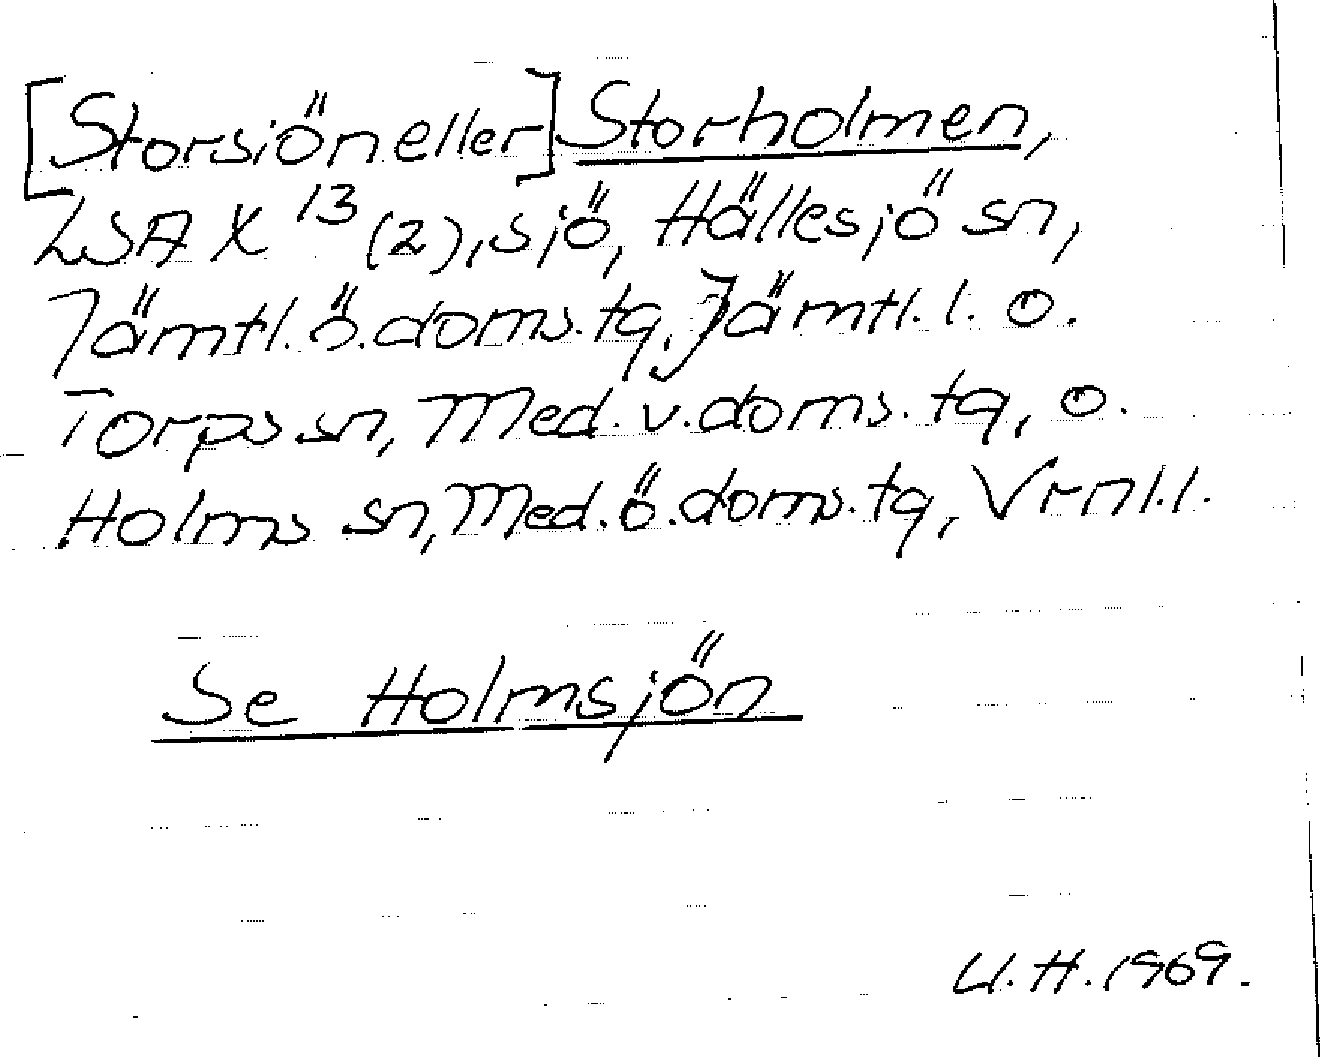 [Storsiön eller] Storholmen,
LSA X 13 (2), sjö, Hällesjö sn,
Jämtl. ö. doms. tg, Jämtl. l. o.
Torps sn, Med. v. doms. tg, o.
Holms sn, Med. ö. doms. tg, Vrnl. l.
Se Holmsjön
U. H. 1969.